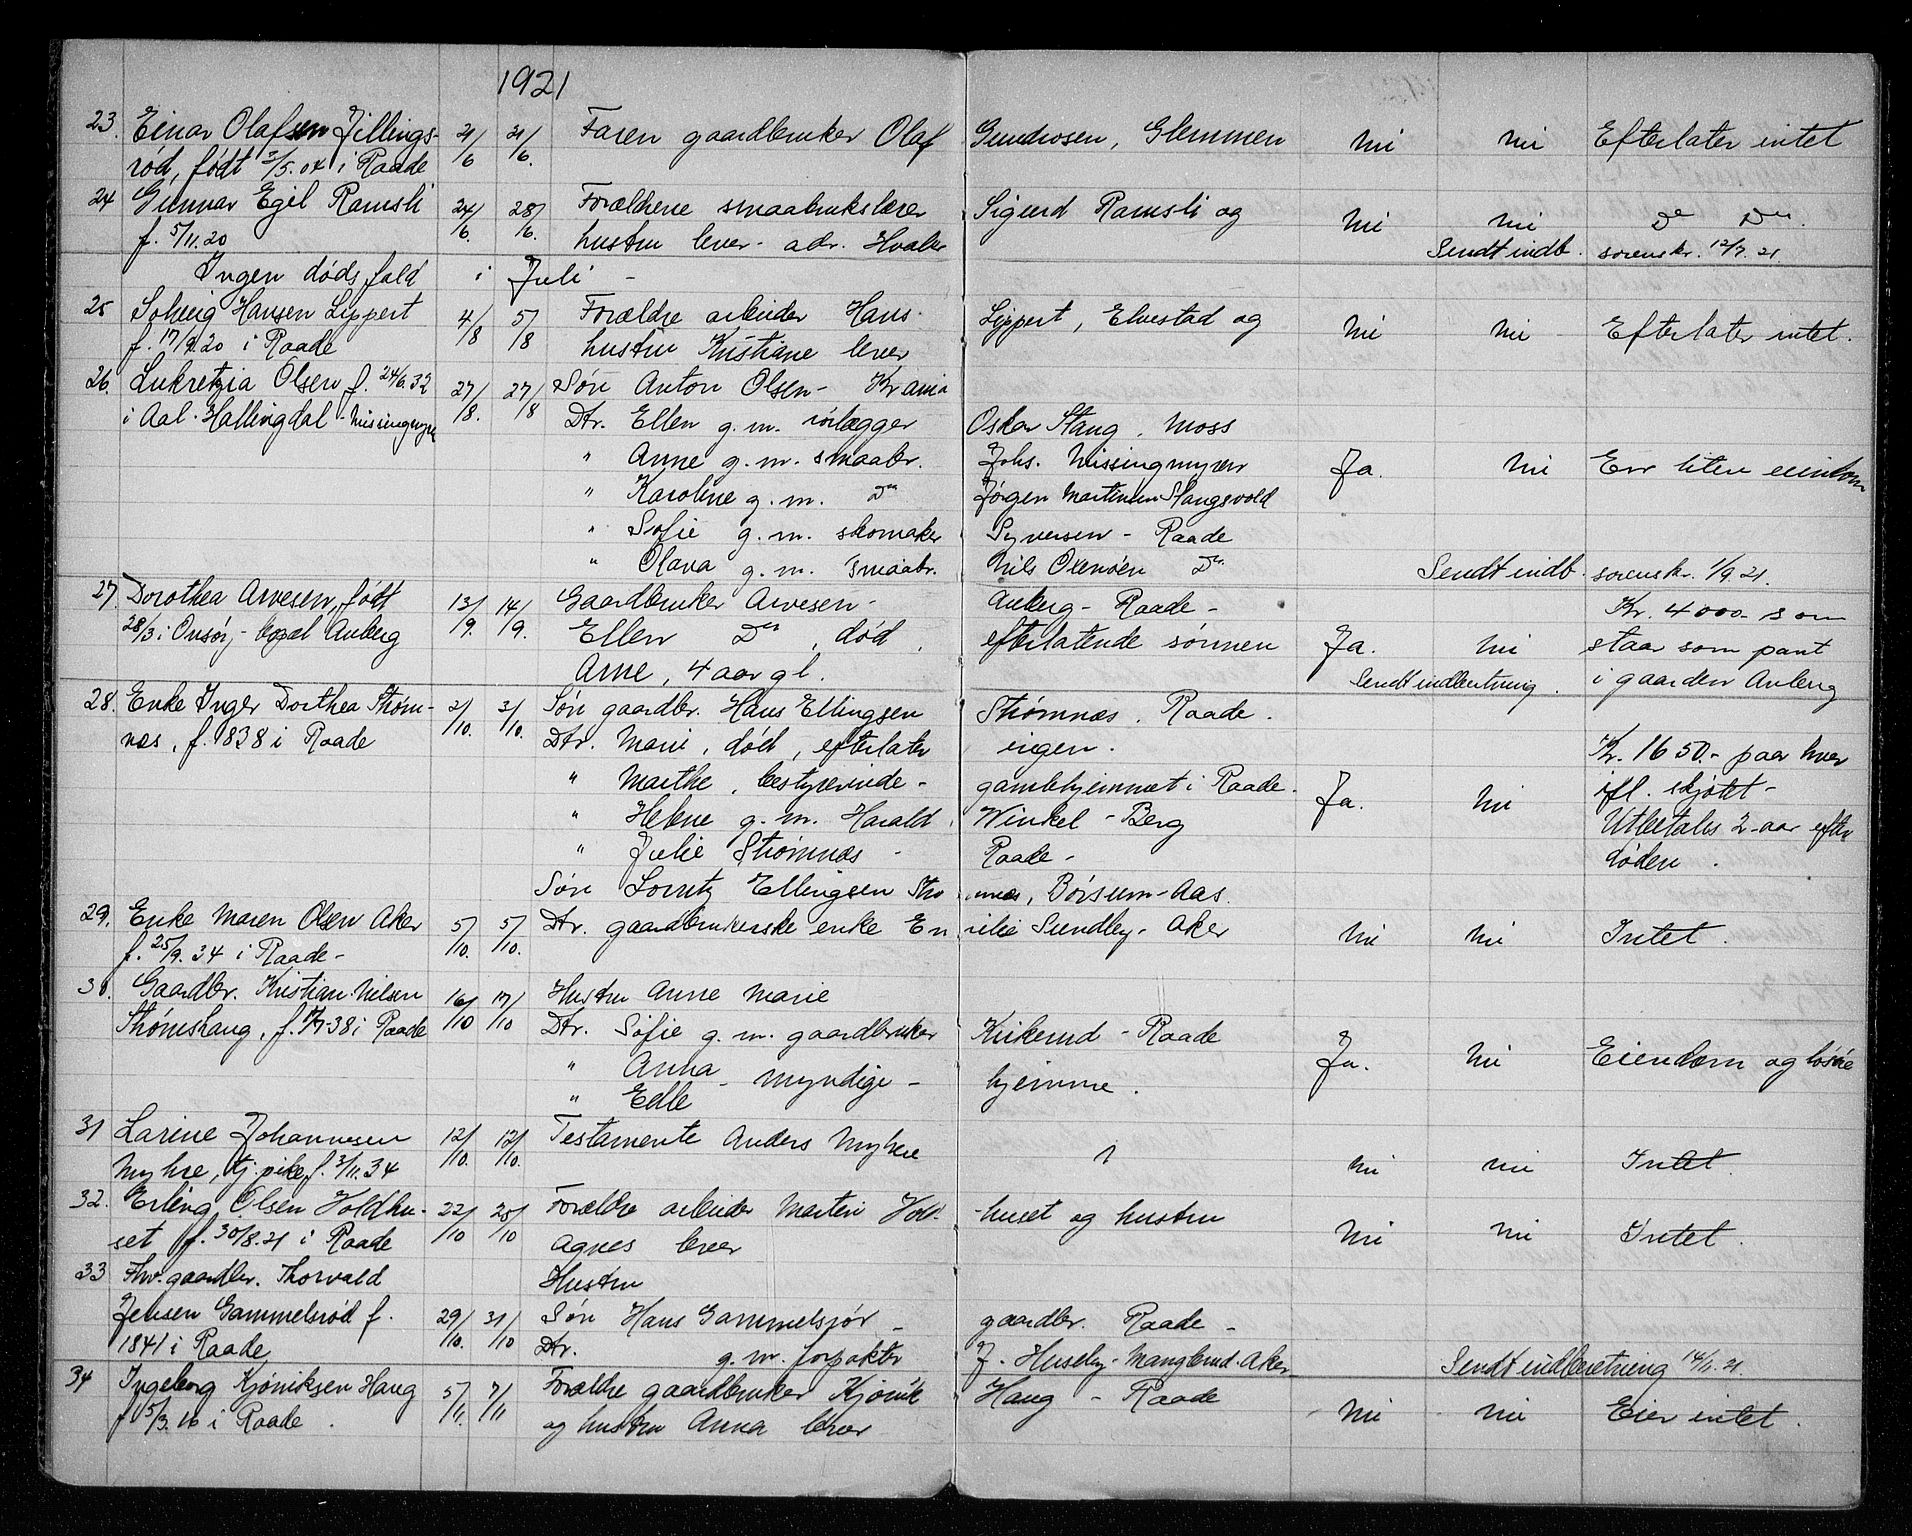 1921
23. Einar Olafsen Jillings- 21/6 21/6. Faren gaardbruker Olaf Gundrosen, Glemmen Nei Nei Efterlater intet
rød, født 2/5.04 i Raade
24 Gunnar Egil Ramsli 24/6. 28/6. Forældrene smaabrukslærer Sigurd Ramsli og Nei Nei Do Do.
f. 5/11.20 hustru lever - adr. Hvaler Sendt indb. sorenskr. 12/7 21.
Ingen dødsfald i Juli -
25 Solveig Hansen Lippert 4/8 5/8 Forældre arbeider Hans Lippert, Elvestad og Nei Nei Efterlater intet.
f. 17/9.20 i Raade hustru Kristiane lever
26. Lukretzia Olsen f. 24/6.32 27/8. 27/8 Søn Anton Olsen - Kr.ania
i Aal. Hallingdal - Missingmyr Dtr. Ellen g.m. rørlægger Oskar Stang, Moss
" Anne g.m. smaabr. Johs. Missingmyren Ja. Nei En liten eiendom
" Karoline g.m. Do Jørgen Martinsen Slangsvold
" Sofie g.m. skomaker Syversen - Raade
" Olava g.m. smaabr. Nils Oxenøen Do. Sendt indb. sorenskr. 1/9 21.
27. Dorothea Arvesen, født 13/9. 14/9. Gaardbruker Arvesen - Auberg - Raade - Kr. 4000.- som
28/3 i Onsøy - bopæl Auberg Ellen Do, død, efterlatende sønnen Ja. Nei staar som pant
Arne, 4 aar gl. Sendt indberetning. i gaarden Auberg
28. Enke Inger Dorthea Strøm- 2/10. 3/10. Søn gaardbr. Hans Ellingsen Strømnæs. Raade.
næs, f. 1838 i Raade Dtr. Marie, død, efterlater ingen. Kr. 1650.- paa hver
" Marthe, bestyrerinde - gamlehjemmet i Raade. Ja. Nei ifl. skjøtet -
" Helene g.m. Harald Winkel - Berg Utbetales 2 aar efter
" Julie Strømnæs - Raade - døden.
Søn Lorntz Ellingsen Strømnæs, Børsum - Aas.
29. Enke Maren Olsen Aker 5/10. 5/10. Dtr. gaardbrukerske enke Emilie Sundby - Aker Nei Nei Intet.
f. 25/9.34 i Raade -
30. Gaardbr. Kristian Nilsen 16/10 17/10 Hustru Anne Marie
Strømshaug, f. 38 i Raade Dtr. Sofie g.m. gaardbruker Kirkerud - Raade
" Anna - myndige - hjemme. Ja. Nei Eiendom og løsøre
" Edle
31 Larine Johannesen 12/10. 12/10. Testamente Anders Myhre Nei Nei Intet.
Myhre, tj. pike, f. 2/11.34
32. Erling Olsen Holdhu- 22/10 25/10 Forældre arbeider Martin Hold- -huset og hustru Nei Nei Intet.
set f. 30/8.21 i Raade Agnes lever
33 Fhv. gaardbr. Thorvald Hustru
Jensen Gammelsrød f. 29/10. 31/10 Søn Hans Gammelsrør - gaardbr. Raade -
1841 i Raade Dtr. g.m. forpakter J. Huseby - Manglerud - Aker Sendt indberetning 14/11. 21.
34 Ingeborg Kjøniksen Haug 5/11. 7/11 Forældre gaardbruker Kjønik Haug - Raade Nei Nei Eier intet.
f 5/3.16 i Raade. og hustru Anna lever